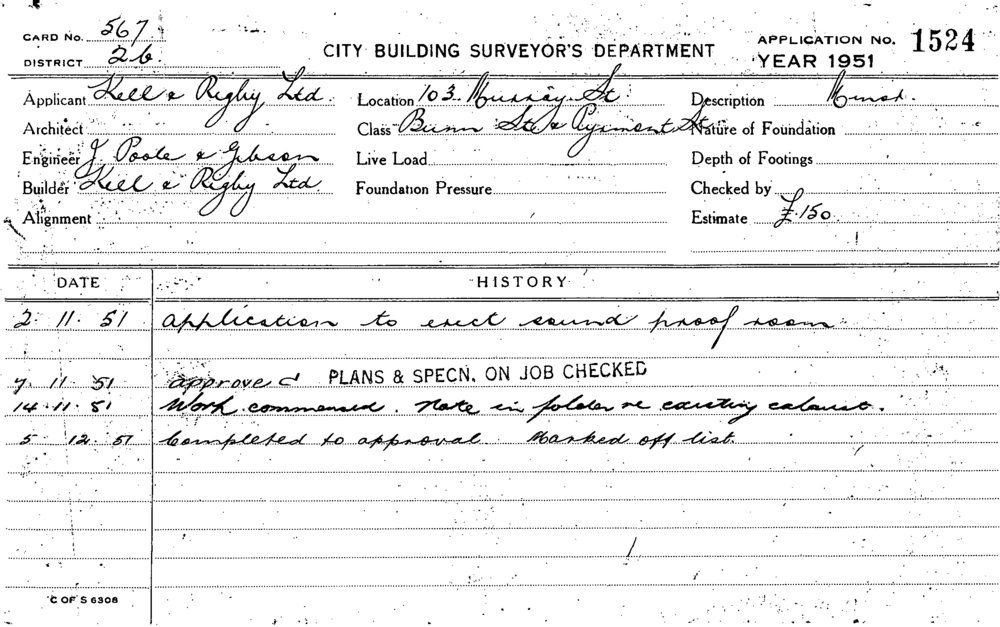 CARD No. 567
DISTRICT 26.
CITY BUILDING SURVEYOR'S DEPARTMENT
APPLICATION No. 1524
YEAR 1951
Applicant Kell & Rigby Ltd
Location 103 Murray St
Description
Architect
Class Bunn St & Pyrmont St
Nature of Foundation
Engineer J. Poole & Gibson
Live Load
Depth of Footings
Builder Kell & Rigby Ltd
Foundation Pressure
Checked by
Alignment
Estimate £150
DATE HISTORY
2. 11. 51 application to erect sound proof room
7. 11. 51 approved PLANS & SPECN. ON JOB CHECKED
14.11.51 Work commenced. Note in folder re existing
5 12. 51 Completed to approval. Marked off list.
C OF S 6308